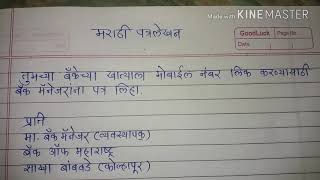 Made With KINEMASTER
मराठी पत्रलेखन
GoodLuck Page No.
Date
तुमच्या बँकेच्या खात्याला मोबाईल नंबर लिंक करण्यासाठी
बँक मॅनेजरांना पत्र लिहा.
प्रति
मा. बँक मॅनेजर (व्यवस्थापक)
बँक ऑफ महाराष्ट्र
शाखा बांबवडे (कोल्हापूर)